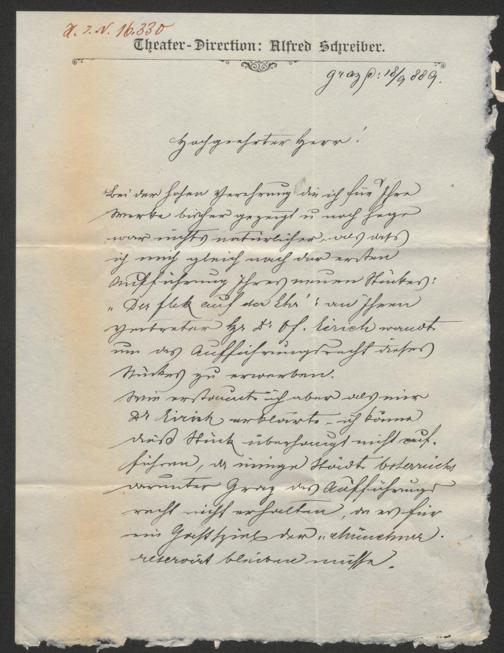 J. I. N. 16.330
Theater-Direction: Alfred Schreiber.
Graz d: 18/9 889.
Hochgeehrter Herr!
Bei der hohen Verehrung die ich für Ihre
Werke bisher gezeigt u noch hege
war nichts natürlicher, als dass
ich mich gleich nach der ersten
Aufführung Ihres neuen Stückes:
"Der Fleck auf der Ehr": an Ihren
Vertreter Hr. Dr. Eirich wandte
um das Aufführungsrecht dieses
Stückes zu erwerben.
Wie erstaunte ich aber als mir
Dr Eirich erklärte – ich könne
dass Stück überhaupt nicht auf-
führen, da einige Städte Österreichs
darunter Graz das Aufführungs
recht nicht erhalten, da es für
ein Gastspiel der "Münchner
reservirt bleiben müsse.